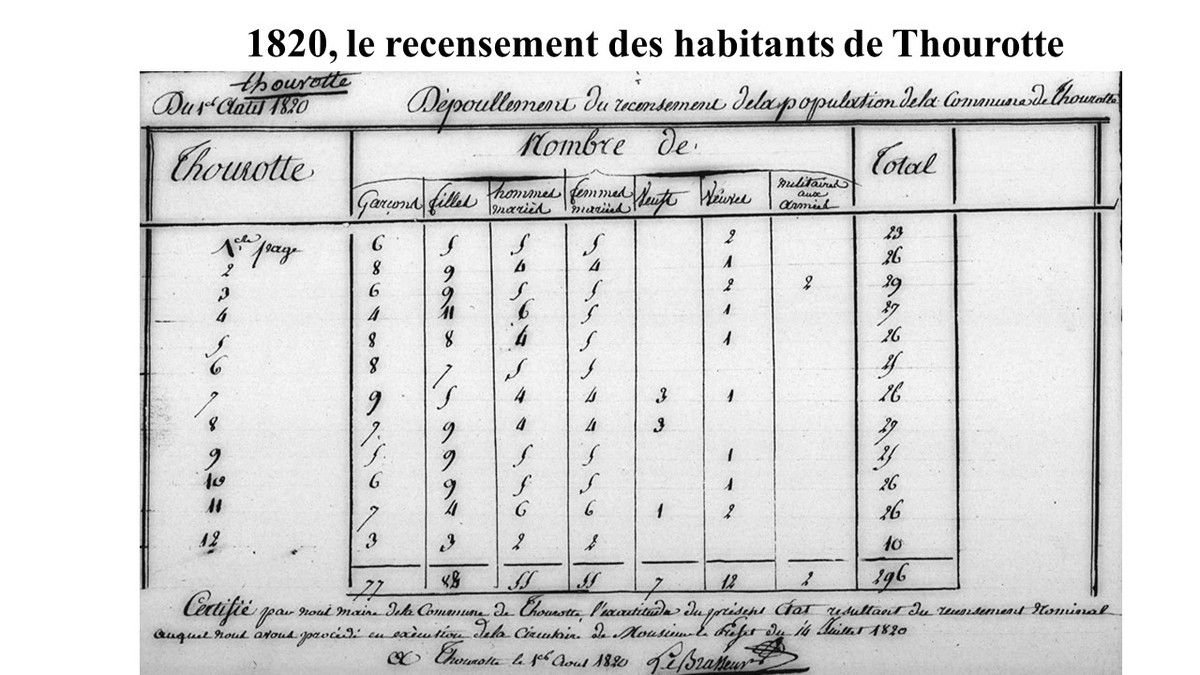 1820, le recensement des habitants de Thourotte
Thourotte
Du 1er Aout 1820 Dépouillement du recensement de la population de la Commune de Thourotte
Thourotte Nombre de Total
Garçons filles hommes mariés femmes mariées Veufs Veuves militaires aux armées
1ere page 6 5 5 5 2 23
2 8 9 4 4 1 26
3 6 9 5 5 2 2 29
4 4 11 6 5 1 27
5 8 8 4 5 1 26
6 8 7 5 5 25
7 9 5 4 4 3 1 26
8 7 9 4 4 3 27
9 5 9 5 5 1 25
10 6 9 5 5 1 26
11 7 4 6 6 1 2 26
12 3 3 2 2 10
77 88 55 55 7 12 2 296
Certifié par nous maire de la Commune de Thourotte, l'exactitude du présent Etat resultant du recensement Nominal
auquel nous avons procédé en exécution de la Circulaire de Monsieur le Préfet du 14 Juillet 1820
A Thourotte le 1er Aout 1820 Le Brasseur